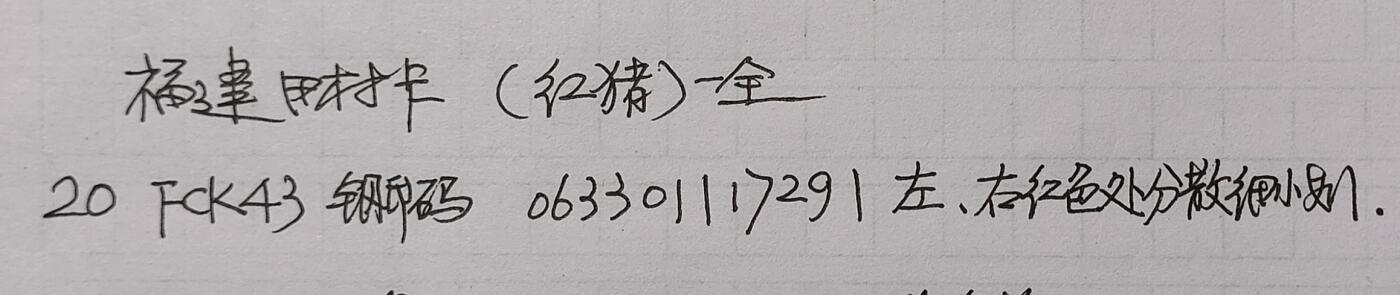 福建田村卡（红猪）一全
20 FCK43 钢印码 063301117291 左、右红色处分散细小划.